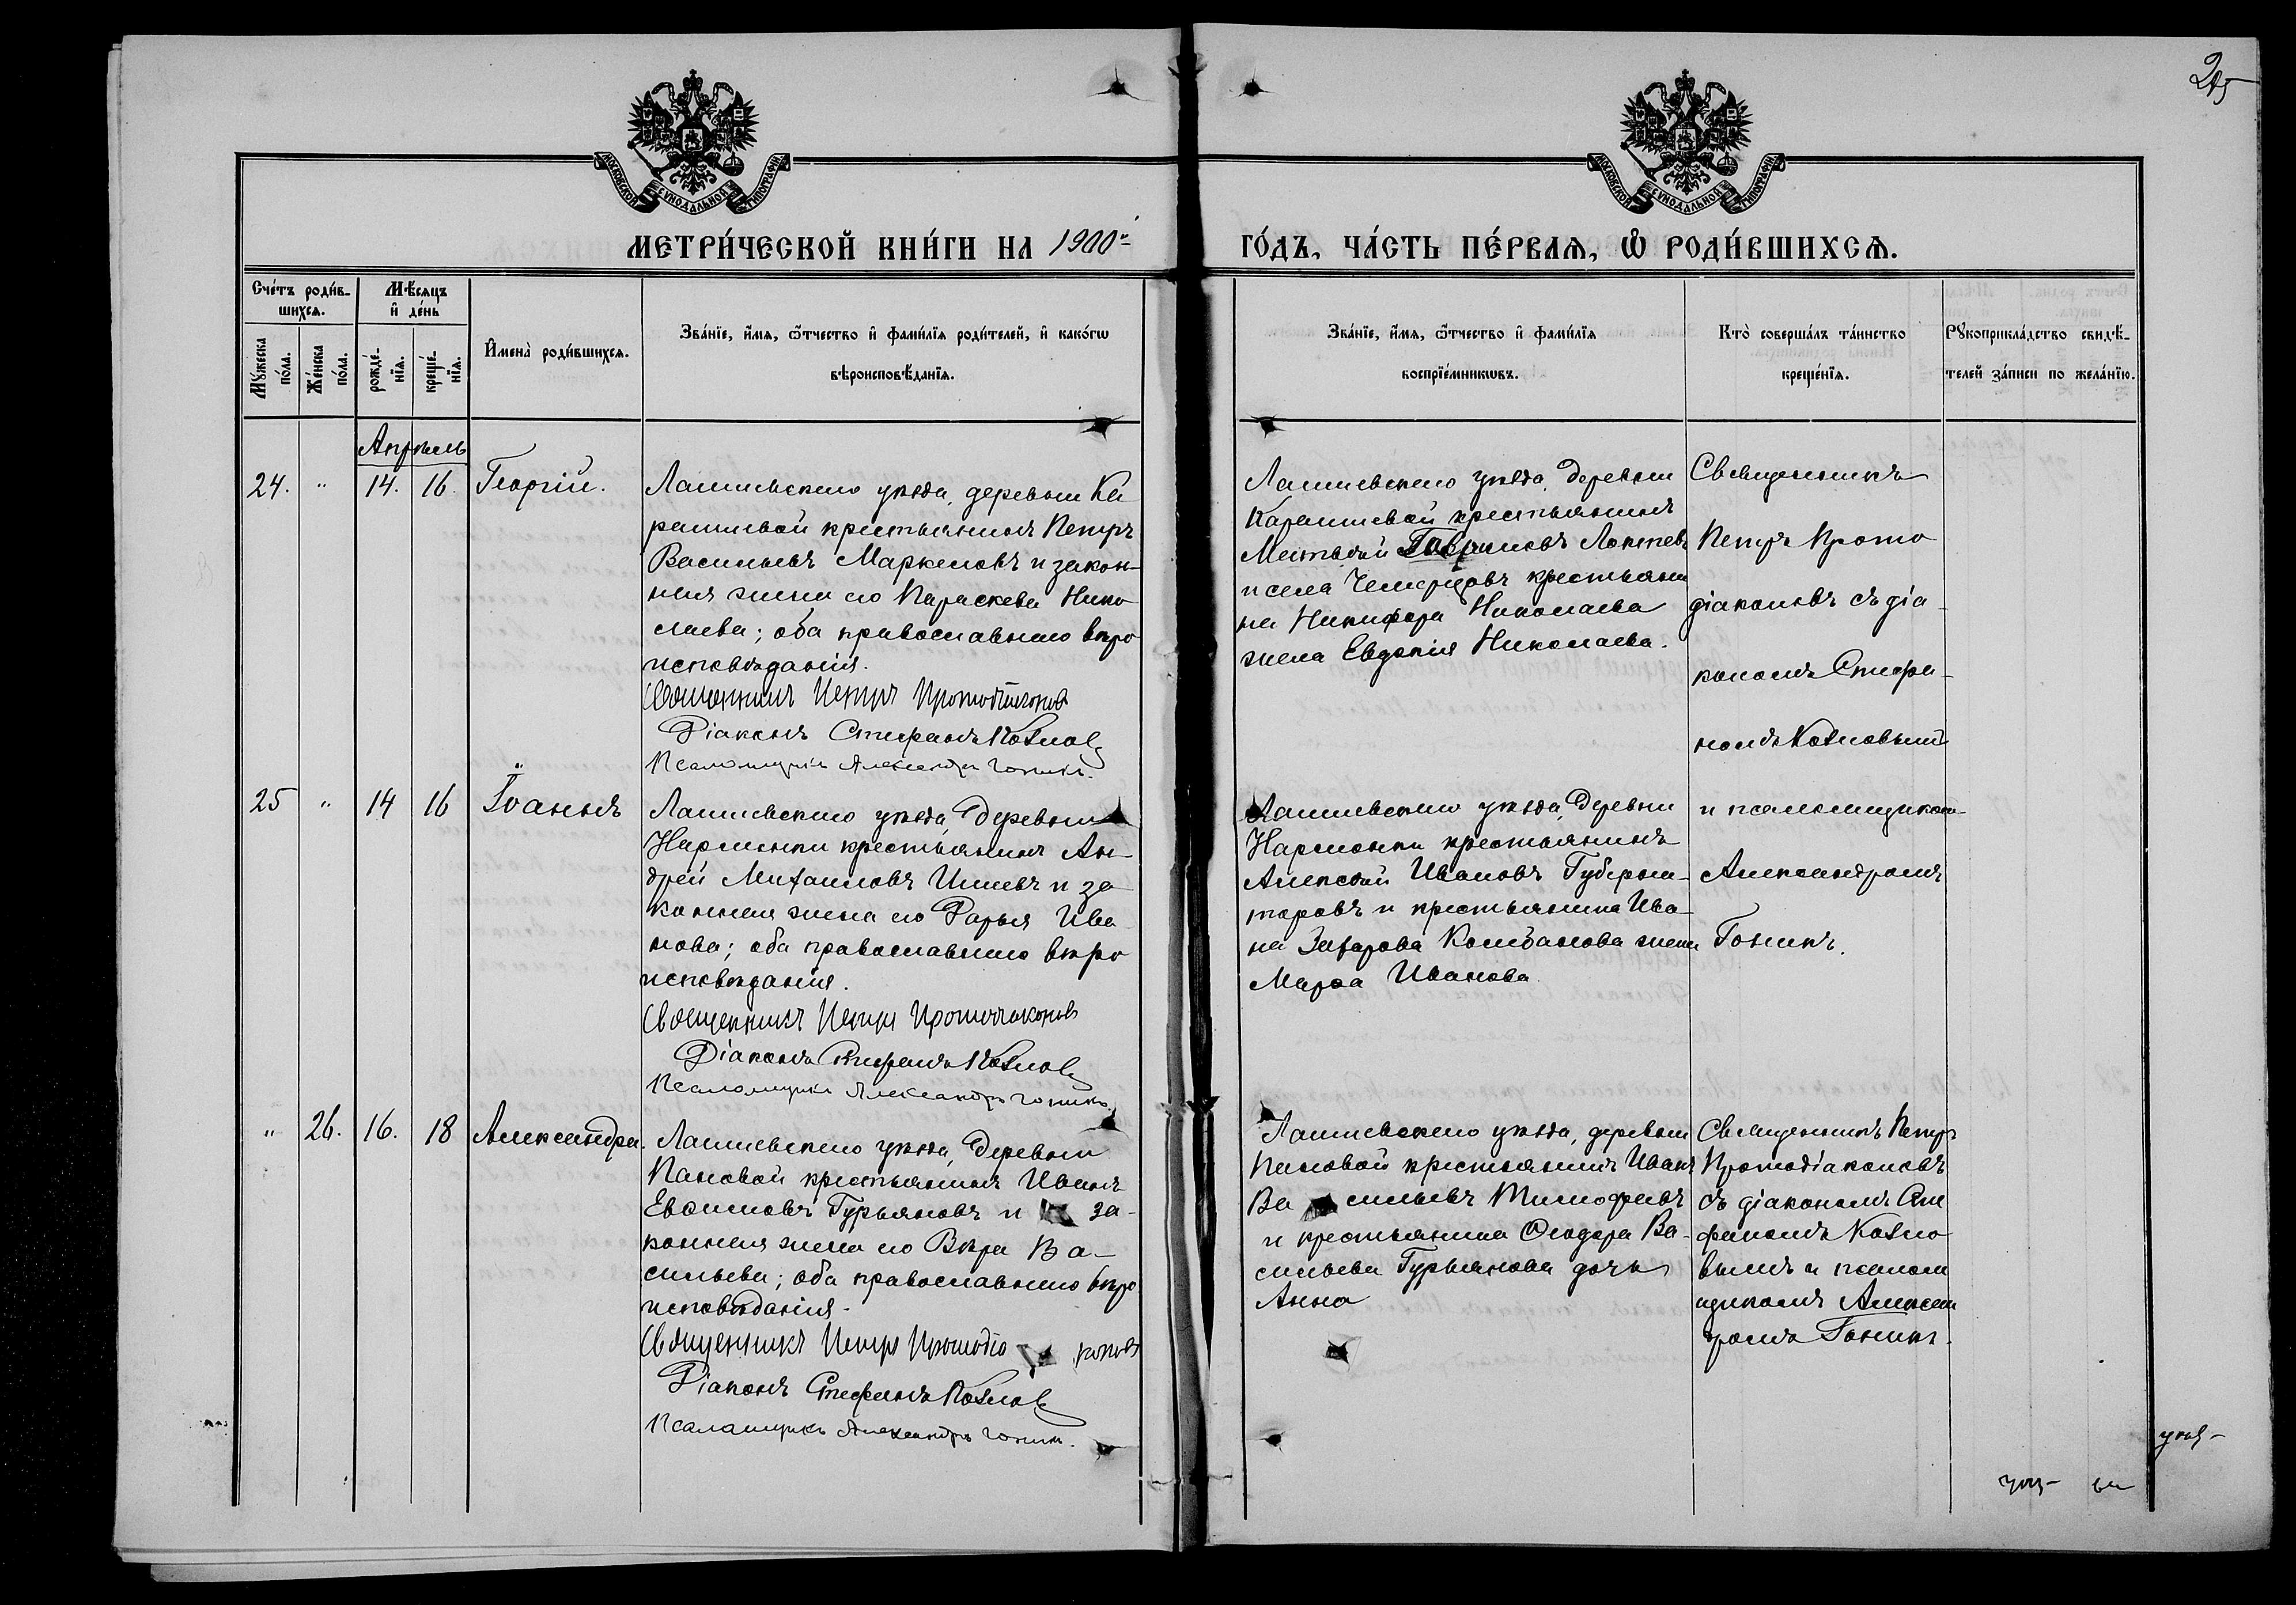 25
МОСКОВСКОЙ СУНОДАЛЬНОЙ ТИПОГРАФІИ
МОСКОВСКОЙ СУНОДАЛЬНОЙ ТИПОГРАФІИ
МЕТРИ́ЧЕСКОЙ КНИ́ГИ НА 1900й
ГО́ДЪ, ЧА́СТЬ ПЕ́РВАѦ, Ѡ РОДИ́ВШИХСѦ.
Сче́тъ роди́в-
шихсѧ.
Мꙋ́жеска по́ла.
Же́нска по́ла.
Мѣ́сѧцъ
и҆ де́нь
рожде́-нїѧ.
креще́-нїѧ.
И҆мена̀ роди́вшихсѧ.
Зва́нїе, и҆́мѧ, ѻ҆́тчество и҆ фами́лїѧ роди́телей, и҆ како́гѡ
вѣроисповѣ́данїѧ.
Зва́нїе, и҆́мѧ, ѻ҆́тчество и҆ фами́лїѧ
воспрїе́мникѡвъ.
Кто̀ соверша́лъ та́инство
креще́нїѧ.
Рꙋкоприкла́дство свидѣ́-
телей за́писи по жела́нїю.
Апрѣль
24. " 14. 16. Георгій.
Лаишевскаго уѣзда, деревни Ка
раишевой крестьянинъ Петръ
Васильевъ Маркеловъ и закон-
ная жена его Параскева Нико
лаева; оба православнаго вѣро
исповѣданія.
Священникъ Петръ Протодіаконовъ
Діаконъ Стефанъ Козловъ
Псаломщикъ Александръ Гонинъ.
Лаишевскаго уѣзда, деревни
Караишевой крестьянинъ
Матвѣй Гавриловъ Лаптевъ
и села крестьяни
на Никифора Николаева
жена Евдокія Николаева.
Священникъ
Петръ Прото
діаконовъ съ діа-
кономъ Стефа-
номъ Козловымъ
и псаломщикомъ
Александромъ
Гонинъ.
25 " 14 16 Іоаннъ
Лаишевскаго уѣзда, деревни
Нармонки крестьянинъ Ан-
дрей Михаиловъ и за
конная жена его Дарья Ива
нова; оба православнаго вѣро
исповѣданія.
Священникъ Петръ Протодіаконовъ
Діаконъ Стефанъ Козловъ
Псаломщикъ Александръ Гонинъ.
Лаишевскаго уѣзда, деревни
Нармонки крестьянинъ
Алексѣй Ивановъ Губерна-
торовъ и крестьянина Ива-
на Захарова жена
Марѳа Иванова
" 26. 16. 18 Александра.
Лаишевскаго уѣзда, деревни
Пановой крестьянинъ Иванъ
Евѳимовъ Гурьяновъ и за-
конная жена его Вѣра Ва-
сильева; оба православнаго вѣро
исповѣданія.
Священникъ Петръ Протодіа коновъ
Діаконъ Стефанъ Козловъ
Псаломщикъ Александръ Гонинъ.
Лаишевскаго уѣзда, деревни
Пановой крестьянинъ Иванъ
Ва сильевъ Тимофѣевъ
и крестьянина Ѳеодора Ва-
сильева Гурьянова дочь
Анна
Священникъ Петръ
Протодіаконовъ
съ діакономъ Сте
фаномъ Козло
вымъ и псалом
щикомъ Алексан
дромъ Гонинъ.